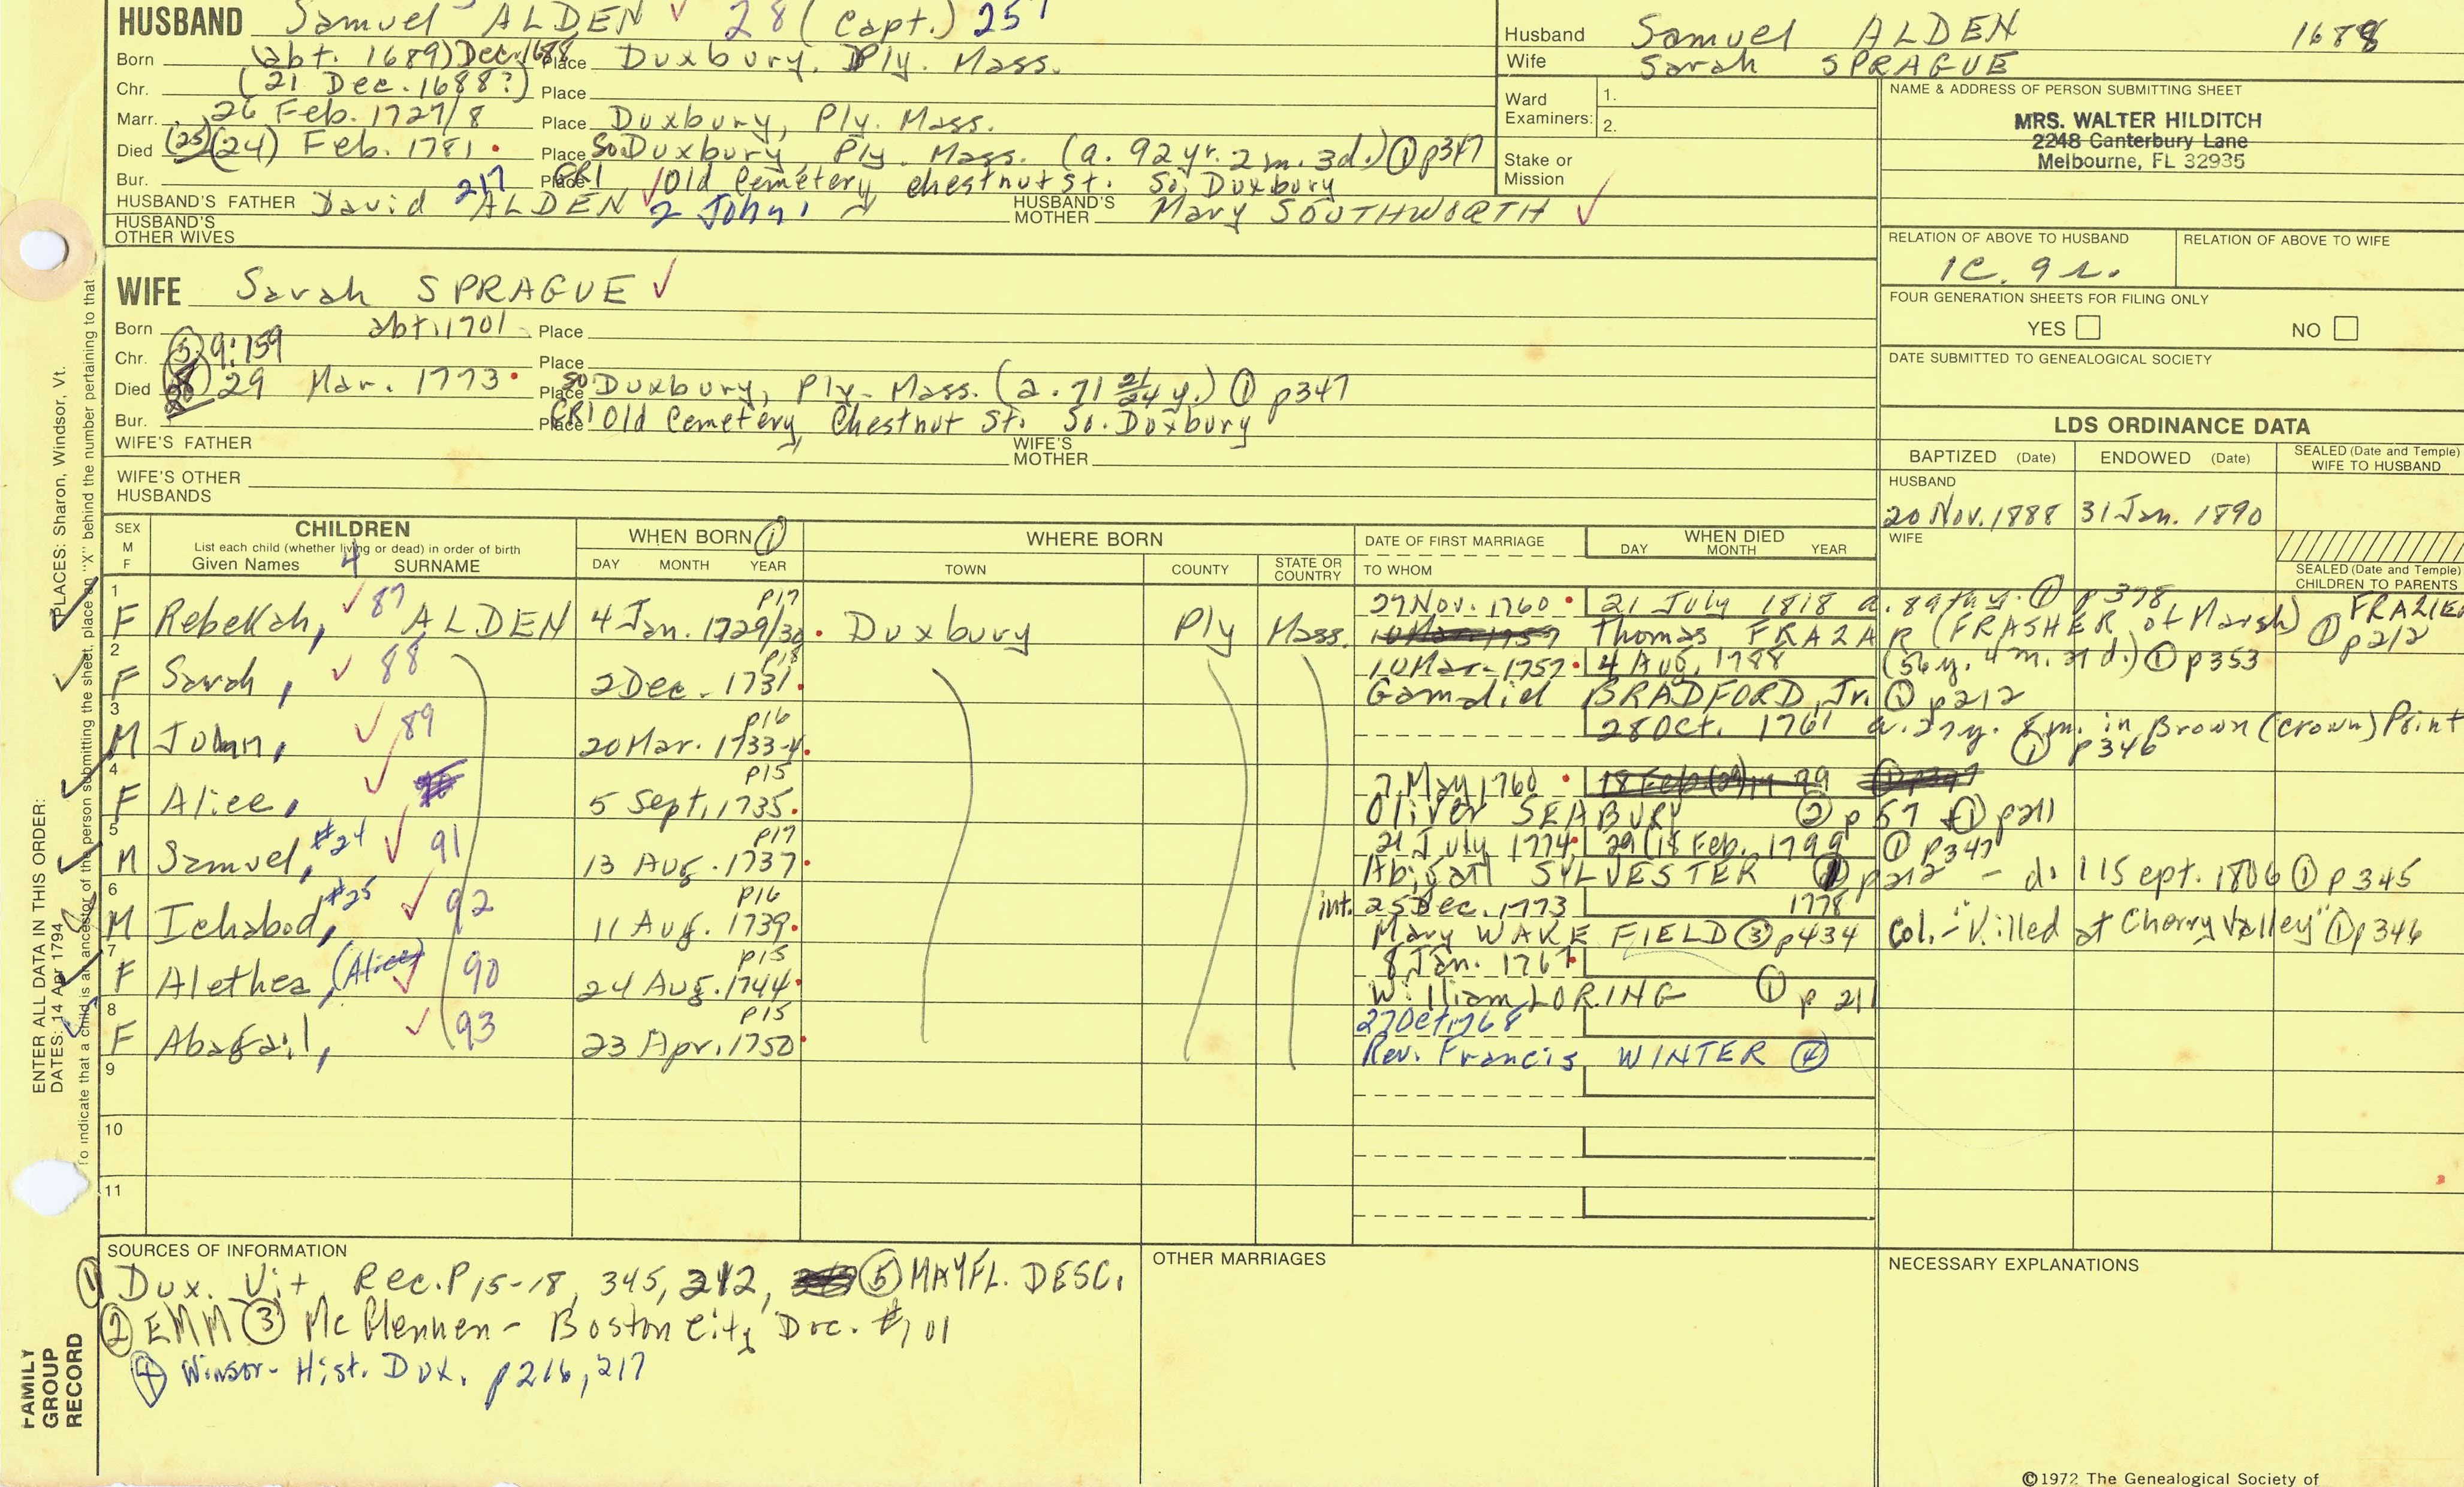 HUSBAND Samuel ALDEN ✓ 28 (Capt.) 25
Born (abt. 1689) Dec. 1688 Place Duxbury, Ply. Mass.
Chr. (21 Dec. 1688?) Place
Marr. 26 Feb. 1727/8 Place Duxbury, Ply. Mass.
Died (25)(24) Feb. 1781 Place So. Duxbury, Ply. Mass. (a. 92 yr. 2 m. 3 d.) ① p347
Bur. Place CR1 Old Cemetery Chestnut St. So. Duxbury
HUSBAND'S FATHER David 217 ALDEN ✓ 2 John 1 HUSBAND'S MOTHER Mary SOUTHWORTH ✓
HUSBAND'S OTHER WIVES
Husband Samuel ALDEN 1688
Wife Sarah SPRAGUE
Ward Examiners: 1.
2.
Stake or Mission
NAME & ADDRESS OF PERSON SUBMITTING SHEET
MRS. WALTER HILDITCH
2248 Canterbury Lane
Melbourne, FL 32935
RELATION OF ABOVE TO HUSBAND RELATION OF ABOVE TO WIFE
1C. 9 r.
FOUR GENERATION SHEETS FOR FILING ONLY
YES NO
DATE SUBMITTED TO GENEALOGICAL SOCIETY
WIFE Sarah SPRAGUE ✓
Born abt. 1701 Place
Chr. ⑤ 9:159 Place
Died 29 Mar. 1773 Place So Duxbury, Ply. Mass. (a. 71 21/24 y.) ① p347
Bur. Place CR1 Old Cemetery, Chestnut St. So. Duxbury
WIFE'S FATHER WIFE'S MOTHER
WIFE'S OTHER HUSBANDS
LDS ORDINANCE DATA
BAPTIZED (Date) ENDOWED (Date) SEALED (Date and Temple) WIFE TO HUSBAND
HUSBAND
20 Nov. 1888 31 Jan. 1890
WIFE
SEALED (Date and Temple) CHILDREN TO PARENTS
SEX M F CHILDREN WHEN BORN ① WHERE BORN DATE OF FIRST MARRIAGE WHEN DIED
List each child (whether living or dead) in order of birth
Given Names 4 SURNAME DAY MONTH YEAR TOWN COUNTY STATE OR COUNTRY TO WHOM DAY MONTH YEAR
1 p17 29 Nov. 1760 21 July 1818 a. 89th y. ① p 378
F Rebekah, ✓ 87 ALDEN 4 Jan. 1729/30 Duxbury Ply Mass. 10 Mar 1757 Thomas FRAZAR (FRASHER of Marsh) ① FRAZIER p212
2 p18 10 Mar. 1757 4 Aug. 1788 (56 y. 4 m. 21 d.) ① p353
F Sarah, ✓ 88 2 Dec. 1731 Gamaliel BRADFORD, Jr. ① p212
3 p16 28 Oct. 1761 a. 27 y. 8 m. in Brown (Crown) Point
M John, ✓ 89 20 Mar. 1733-4 ① p346
4 p15 7 May 1760
F Alice, ✓ 5 Sept, 1735 Oliver SEABURY ② p 57 ① p211
5 p17 21 July 1774 29 (18 Feb. 1799 ① p347
M Samuel, #24 ✓ 91 13 Aug. 1737 Abigail SYLVESTER p212 - d. 1 15 Sept. 1806 ① p345
6 p16 int. 25 Dec. 1773 1778
M Ichabod, #25 ✓ 92 11 Aug. 1739 Mary WAKEFIELD ③ p434 Col. - "Killed at Cherry Valley" ① p346
7 p15 8 Jan. 1767
F Alethea, (Alice) ✓ 90 24 Aug. 1744 William LORING ① p 211
8 p15 27 Oct 1768
F Abagail, ✓ 93 23 Apr. 1750 Rev. Francis WINTER ④
9
10
11
SOURCES OF INFORMATION
① Dux. Vit. Rec. P15-18, 345, 212, ⑤ MAYFL. DESC.
② EMM ③ McGlennen - Boston City Doc. #101
④ Winsor - Hist. Dux. p216, 217
OTHER MARRIAGES
NECESSARY EXPLANATIONS
©1972 The Genealogical Society of
ENTER ALL DATA IN THIS ORDER:
DATES: 14 Apr 1794 PLACES: Sharon, Windsor, Vt.
To indicate that a child is an ancestor of the person submitting the sheet, place an "X" behind the number pertaining to that
FAMILY GROUP RECORD